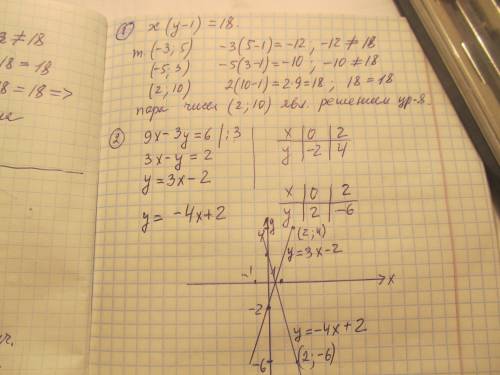 2 ≠ 18
18 = 18
18 = 18 =>
① x(y-1) = 18.
т. (-3; 5) -3(5-1) = -12; -12 ≠ 18
(-5; 3) -5(3-1) = -10; -10 ≠ 18
(2; 10) 2(10-1) = 2·9 = 18; 18 = 18
пара чисел (2; 10) явл. решением ур-я.
② 9x - 3y = 6 |:3
3x - y = 2
y = 3x - 2
y = -4x + 2
x | 0 | 2
y | -2 | 4
x | 0 | 2
y | 2 | -6
y
(2; 4)
y = 3x - 2
-1
1
x
-2
y = -4x + 2
-6
(2; -6)